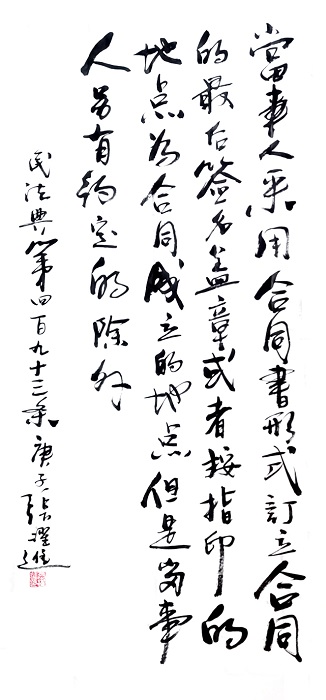 當事人采用合同書形式訂立合同
的最后签名盖章或者按指印的
地点為合同成立的地点但是當事
人另有約定的除外
民法典第四百九十三条庚子張躍進